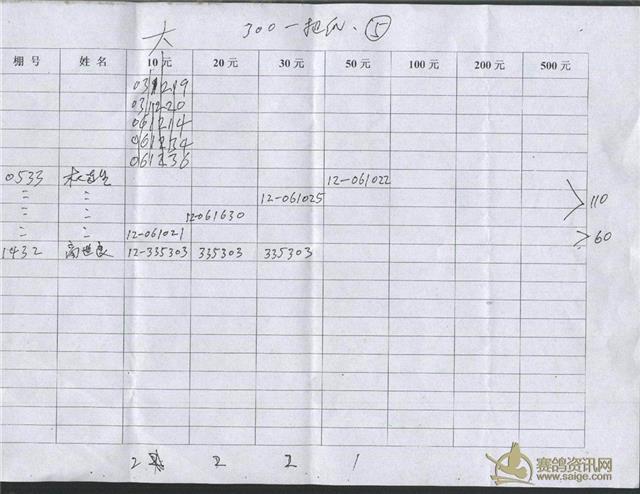 大 300一把抓. ⑤
棚号 姓名 10元 20元 30元 50元 100元 200元 500元
031219
031220
061214
061234
061236
0533 12-061022
〃 〃 12-061025 110
〃 〃 12-061630
〃 〃 12-061021 60
1432 高世良 12-335303 335303 335303
2 2 2 1
赛鸽资讯网
www.saige.com